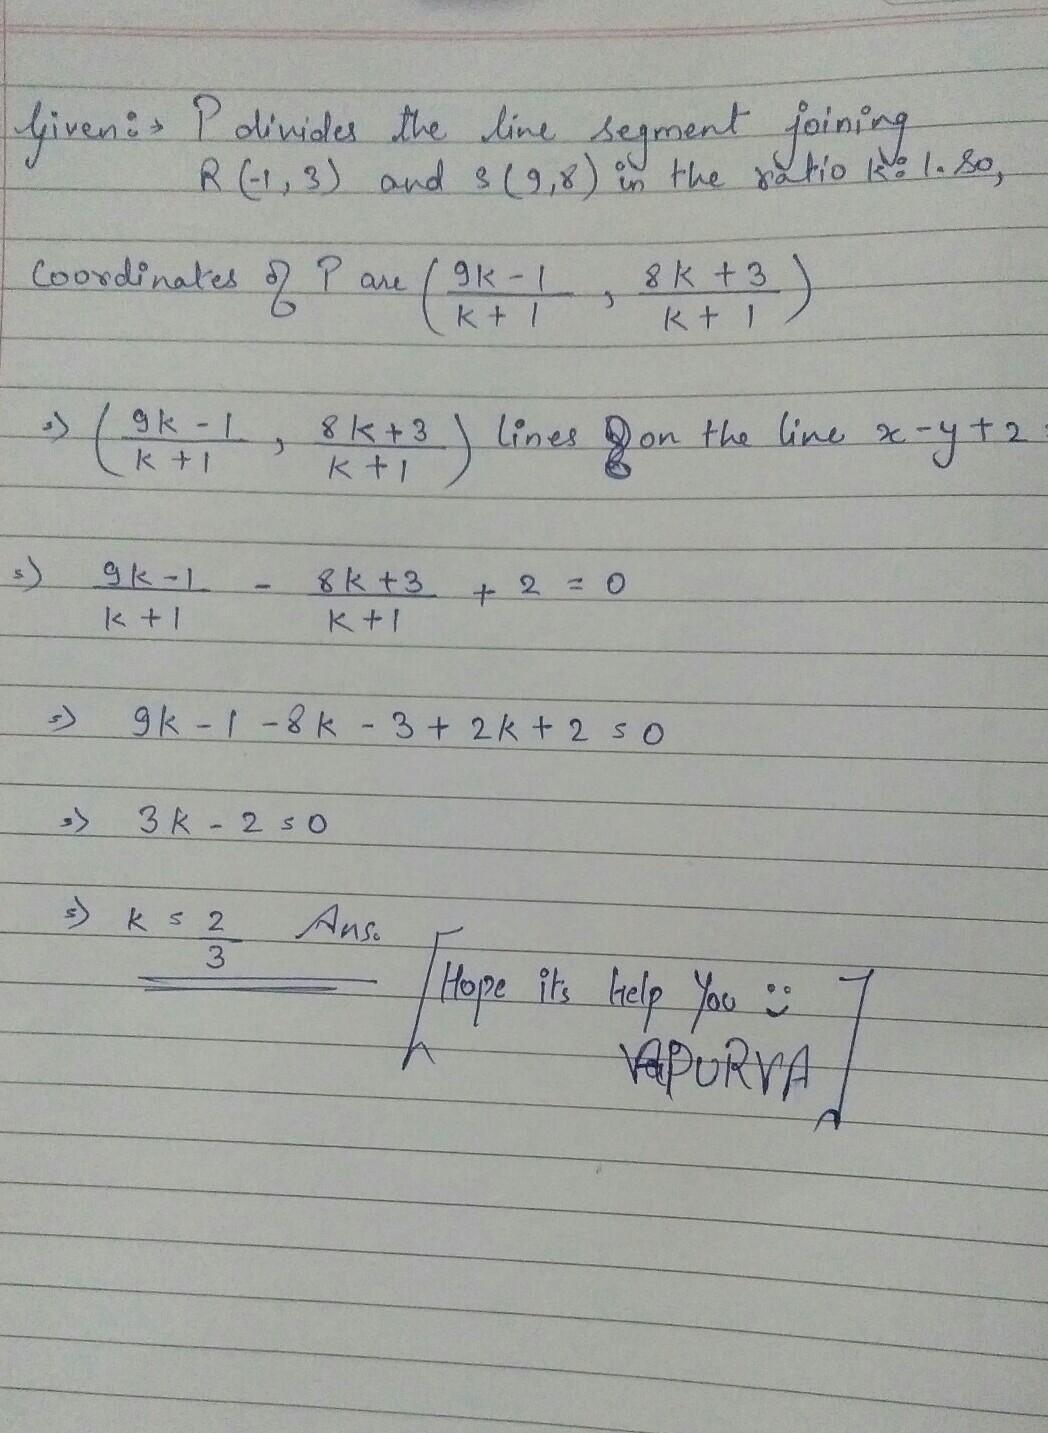 Given:→ P divides the line segment joining
R (-1, 3) and S (9, 8) in the ratio k:1. So,
Coordinates of P are ( 9k - 1 / k + 1 , 8k + 3 / k + 1 )
⇒ ( 9k - 1 / k + 1 , 8k + 3 / k + 1 ) lines on the line x - y + 2 =
⇒ 9k - 1 / k + 1 - 8k + 3 / k + 1 + 2 = 0
⇒ 9k - 1 - 8k - 3 + 2k + 2 = 0
⇒ 3k - 2 = 0
⇒ k = 2 / 3 Ans.
Hope its help You :)
APURVA